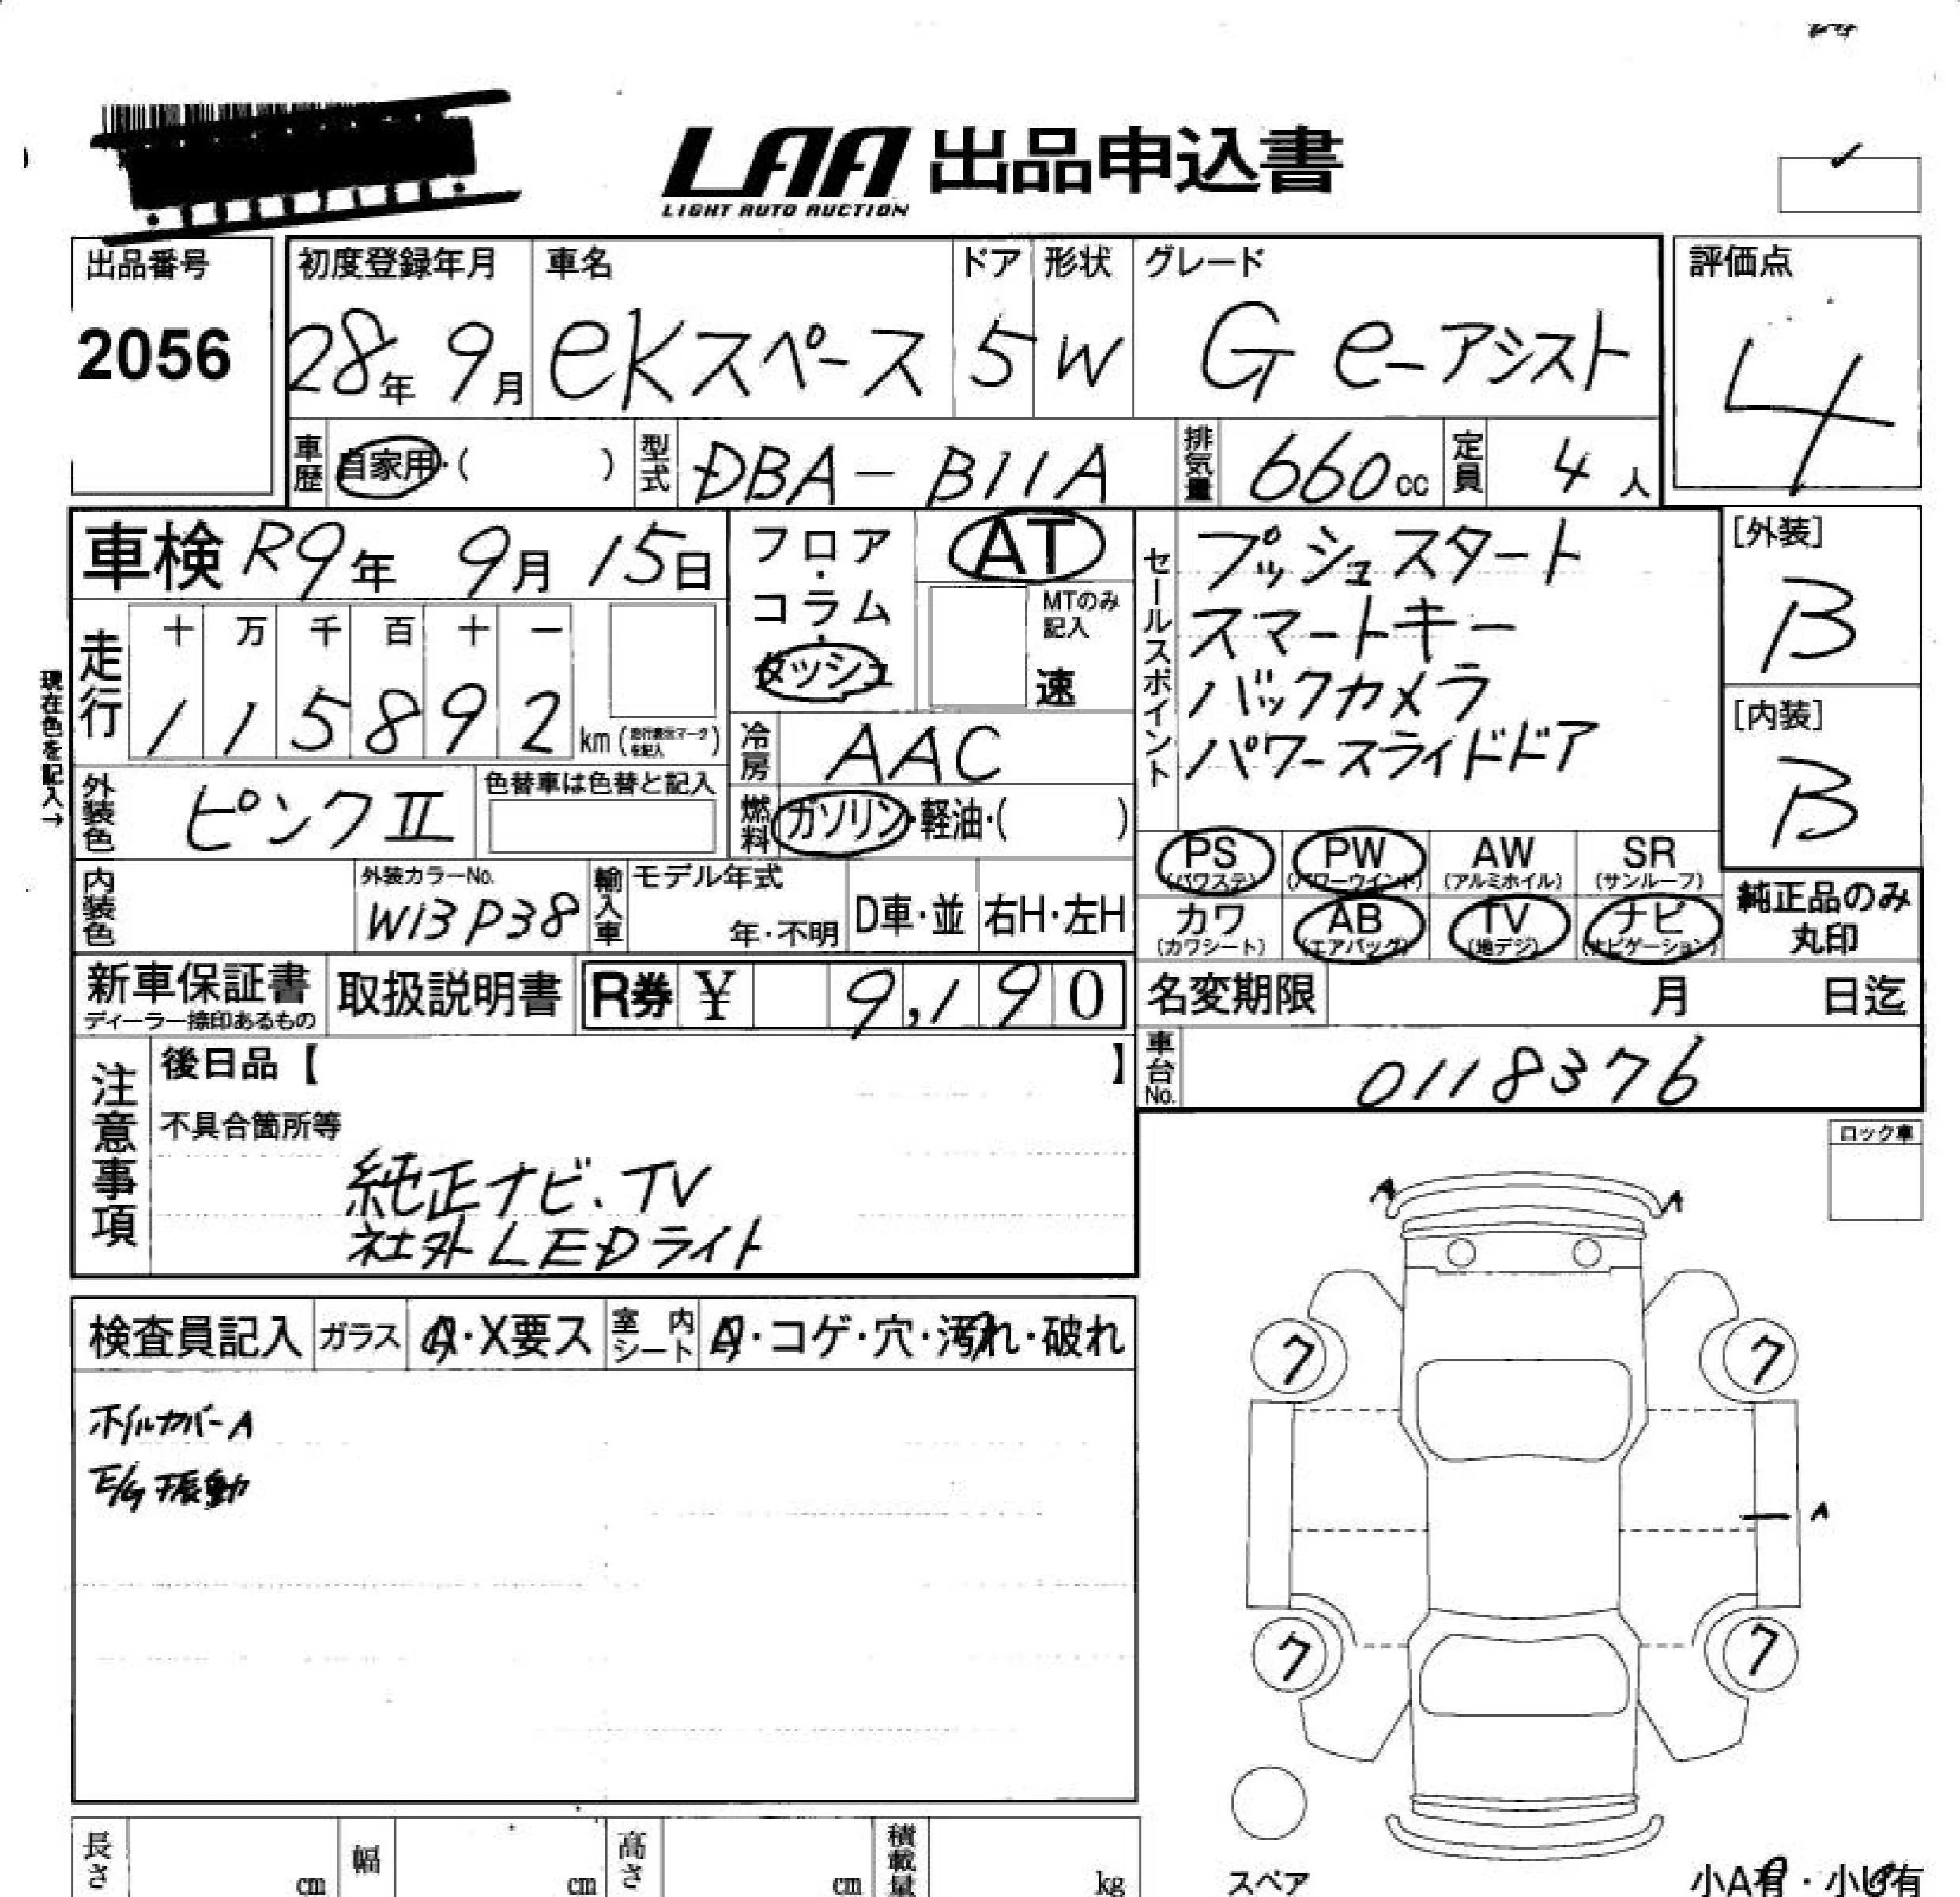 LAA 出品申込書
LIGHT AUTO AUCTION
出品番号
2056
初度登録年月
28年 9月
車名
eKスペース
ドア
5
形状
W
グレード
G e-アシスト
評価点
4
車歴 自家用・( )
型式 DBA-B11A
排気量 660cc
定員 4人
車検 R9年 9月 15日
フロア・コラム・ダッシュ
AT
MTのみ記入
速
セールスポイント
プッシュスタート
スマートキー
バックカメラ
パワースライドドア
[外装]
B
[内装]
B
現在色を記入→
走行
十 万 千 百 十 一
1 1 5 8 9 2 km (走行表示マークを記入)
冷房 AAC
外装色 ピンクII
色替車は色替と記入
燃料 ガソリン・軽油・( )
PS (パワステ) PW (パワーウインド) AW (アルミホイル) SR (サンルーフ)
カワ (カワシート) AB (エアバッグ) TV (地デジ) ナビ (ナビゲーション)
純正品のみ
丸印
内装色
外装カラーNo.
W13P38
輸入車
モデル年式
年・不明
D車・並 右H・左H
新車保証書
ディーラー捺印あるもの
取扱説明書
R券 ¥ 9,190
名変期限 月 日迄
車台No. 0118376
注意事項
後日品【 】
不具合箇所等
純正ナビ、TV
社外LEDライト
ロック車
検査員記入 ガラス A・X要ス 室内シート A・コゲ・穴・汚れ・破れ
ホイルカバーA
E/G振動
A A
7 7
A
7 7
スペア
小A有・小U有
長さ cm 幅 cm 高さ cm 積載量 kg